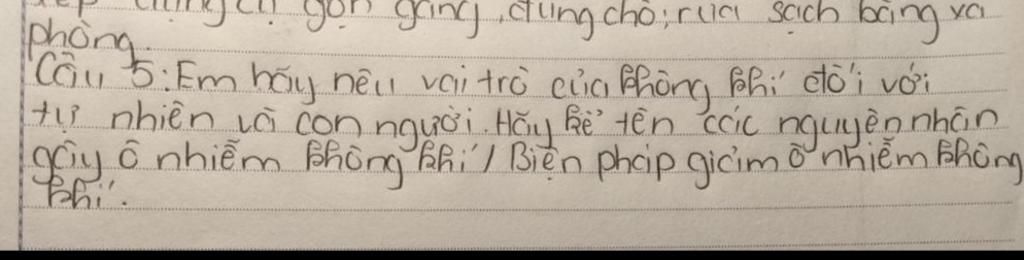 dụng cụ gọn gàng, đúng chỗ; rửa sạch bằng xà
phòng.
Câu 5: Em hãy nêu vai trò của không khí đối với
tự nhiên và con người. Hãy kể tên các nguyên nhân
gây ô nhiễm không khí / Biện pháp giảm ô nhiễm không
khí.